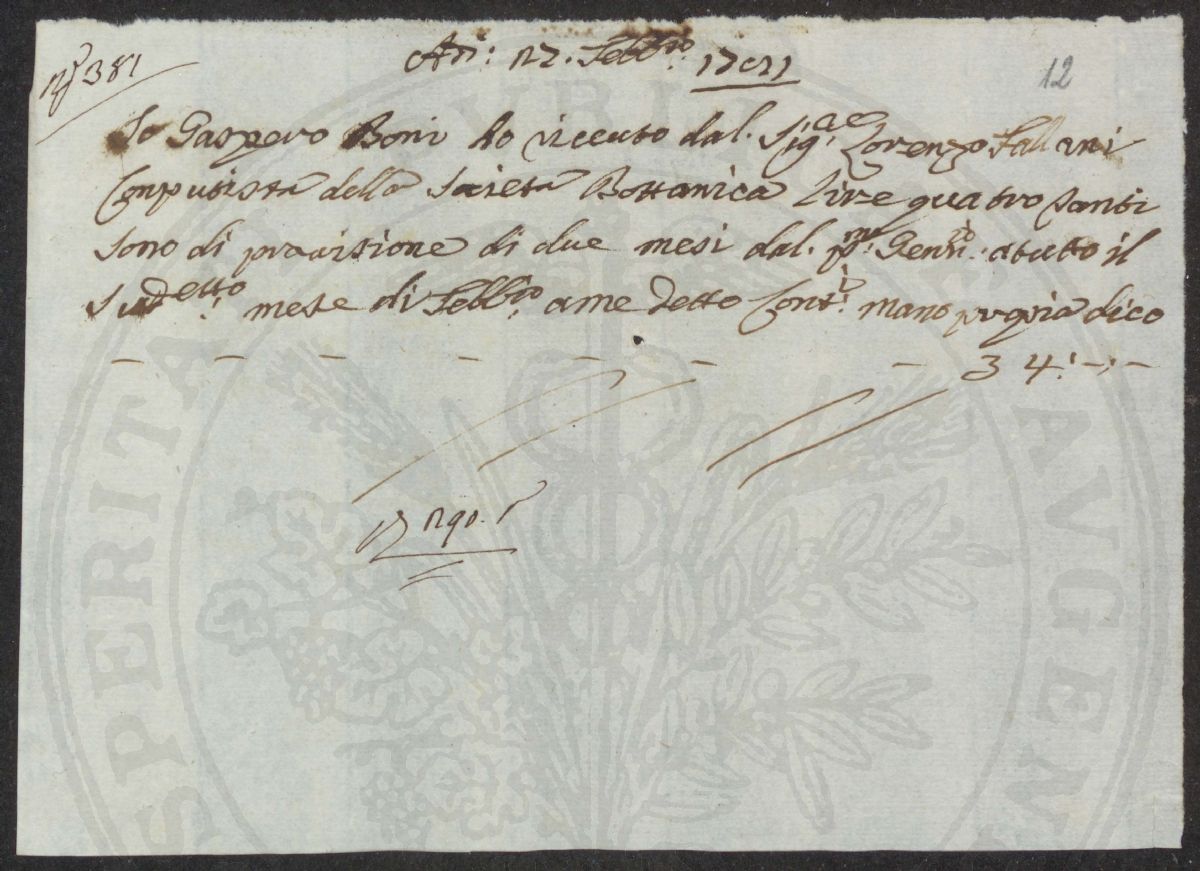 N° 381
Adi: 27. Febb:ro
12
Io Gaspero Boni ho riceuto dal. Sig:re Lorenzo Fallani
Computista della Società Bottanica Lire quatro tanti
sono di provisione di due mesi dal. p:mo Genn:ro atutto il
Sudetto: mese di Febb:ro ame detto Cont:i mano propria dico
– – – – – – – 3 4:–:–
190.
SPERITA PVBLICAE AVGEN